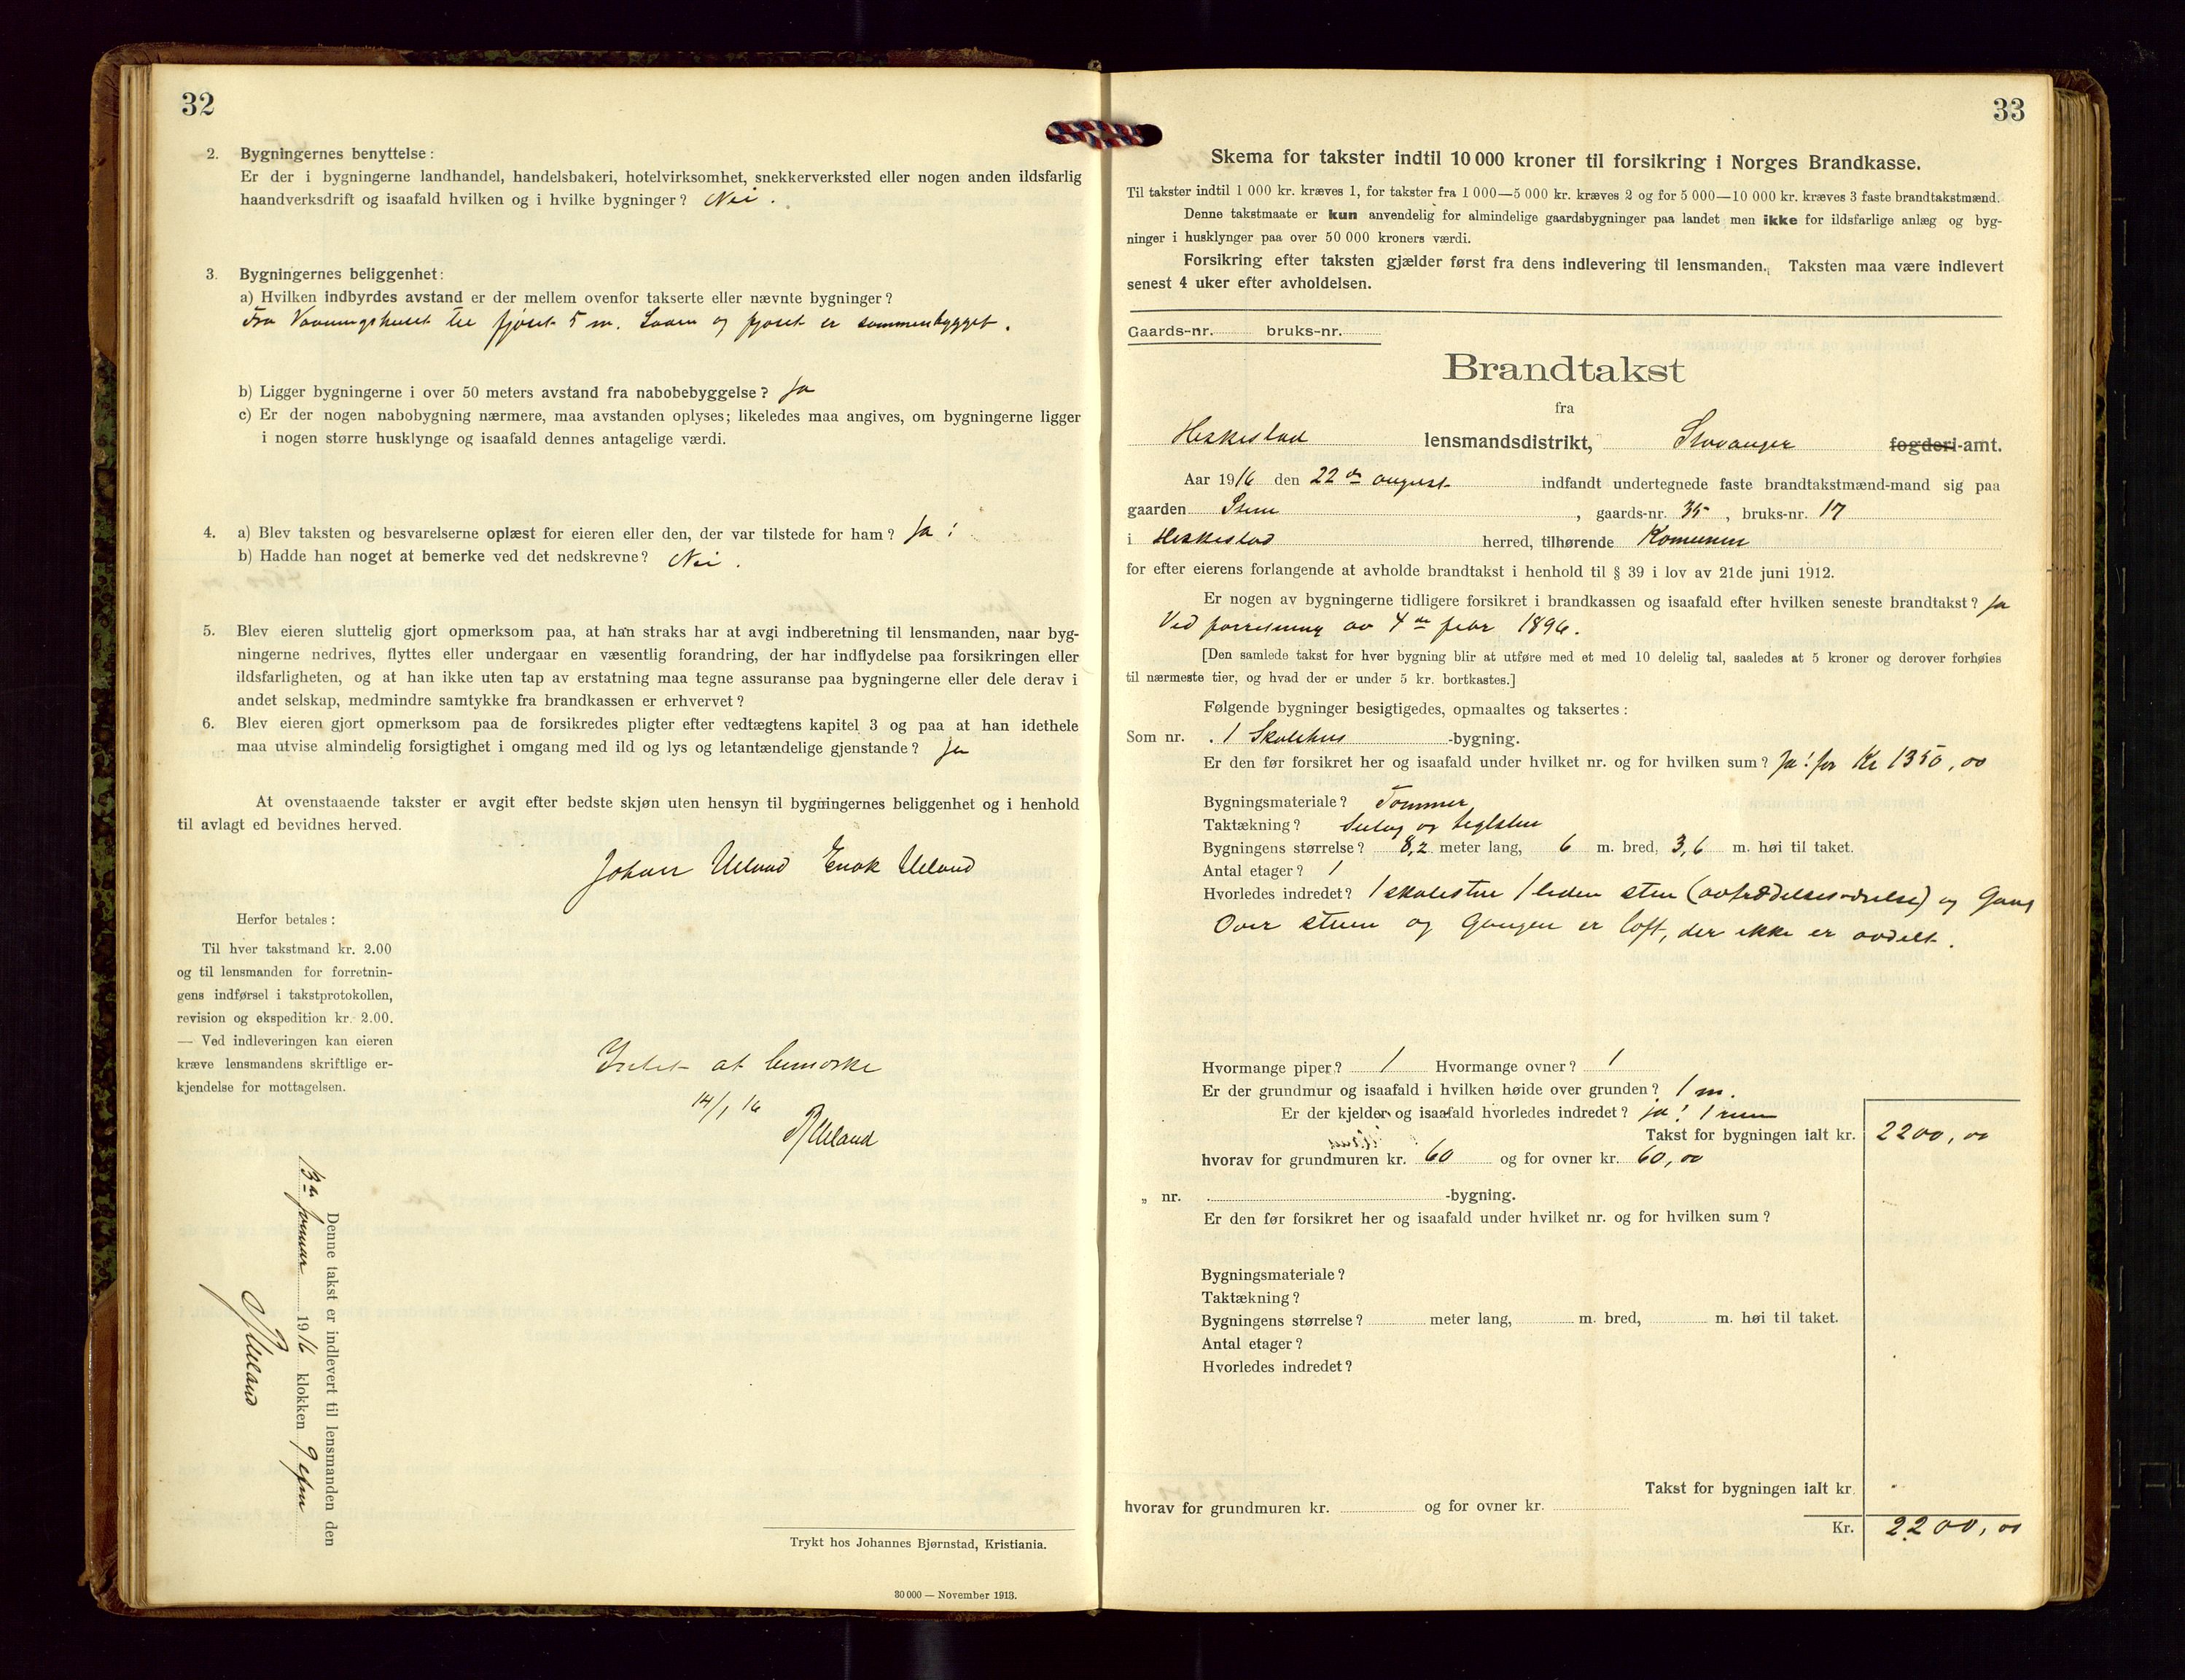 32
2. Bygningernes benyttelse:
Er der i bygningerne landhandel, handelsbakeri, hotelvirksomhet, snekkerverksted eller nogen anden ildsfarlig
haandverksdrift og isaafald hvilken og i hvilke bygninger? Nei.
3. Bygningernes beliggenhet:
a) Hvilken indbyrdes avstand er der mellem ovenfor takserte eller nævnte bygninger?
Fra Vaaningshuset til fjøset 5 m. Laaen og fjøset er sammenbygget.
b) Ligger bygningerne i over 50 meters avstand fra nabobebyggelse? Ja
c) Er der nogen nabobygning nærmere, maa avstanden oplyses; likeledes maa angives, om bygningerne ligger
i nogen større husklynge og isaafald dennes antagelige værdi.
4. a) Blev taksten og besvarelserne oplæst for eieren eller den, der var tilstede for ham? Ja!
b) Hadde han noget at bemerke ved det nedskrevne? Nei.
5. Blev eieren sluttelig gjort opmerksom paa, at han straks har at avgi indberetning til lensmanden, naar byg-
ningerne nedrives, flyttes eller undergaar en væsentlig forandring, der har indflydelse paa forsikringen eller
ildsfarligheten, og at han ikke uten tap av erstatning maa tegne assuranse paa bygningerne eller dele derav i
andet selskap, medmindre samtykke fra brandkassen er erhvervet?
6. Blev eieren gjort opmerksom paa de forsikredes pligter efter vedtægtens kapitel 3 og paa at han idethele
maa utvise almindelig forsigtighet i omgang med ild og lys og letantændelige gjenstande? Ja
At ovenstaaende takster er avgit efter bedste skjøn uten hensyn til bygningernes beliggenhet og i henhold
til avlagt ed bevidnes herved.
Johan Ueland Enok Ueland
Herfor betales:
Til hver takstmand kr. 2.00
og til lensmanden for forretnin-
gens indførsel i takstprotokollen,
revision og ekspedition kr. 2.00.
— Ved indleveringen kan eieren
kræve lensmandens skriftlige er-
kjendelse for mottagelsen.
Intet at bemærke
14/1 16
Ueland
Denne takst er indlevert til lensmanden den
13de januar 1916 klokken 9 efm
Ueland
Trykt hos Johannes Bjørnstad, Kristiania.
30 000 — November 1913.
33
Skema for takster indtil 10 000 kroner til forsikring i Norges Brandkasse.
Til takster indtil 1 000 kr. kræves 1, for takster fra 1 000—5 000 kr. kræves 2 og for 5 000—10 000 kr. kræves 3 faste brandtakstmænd.
Denne takstmaate er kun anvendelig for almindelige gaardsbygninger paa landet men ikke for ildsfarlige anlæg og byg-
ninger i husklynger paa over 50 000 kroners værdi.
Forsikring efter taksten gjælder først fra dens indlevering til lensmanden. Taksten maa være indlevert
senest 4 uker efter avholdelsen.
Gaards-nr. bruks-nr.
Brandtakst
fra
Heskestad lensmandsdistrikt, Stavanger fogderi-amt.
Aar 1916 den 22de august indfandt undertegnede faste brandtakstmænd-mand sig paa
gaarden , gaards-nr. 35 , bruks-nr. 17
i Heskestad herred, tilhørende Komunen
for efter eierens forlangende at avholde brandtakst i henhold til § 39 i lov av 21de juni 1912.
Er nogen av bygningerne tidligere forsikret i brandkassen og isaafald efter hvilken seneste brandtakst? Ja
Ved forretning av 4de febr 1896.
[Den samlede takst for hver bygning blir at utføre med et med 10 delelig tal, saaledes at 5 kroner og derover forhøies
til nærmeste tier, og hvad der er under 5 kr. bortkastes.]
Følgende bygninger besigtigedes, opmaaltes og taksertes:
Som nr. 1 Skolehus -bygning.
Er den før forsikret her og isaafald under hvilket nr. og for hvilken sum? Ja! for Kr 1350,00
Bygningsmateriale? Tømmer
Taktækning? og teglsten
Bygningens størrelse? 8,2 meter lang, 6 m. bred, 3,6 m. høi til taket.
Antal etager? 1
Hvorledes indredet? 1 skolestue 1 liden stue (avtrædelsesværelse) og Gang
Over stuen og Gangen er loft, der ikke er avdelt.
Hvormange piper? 1 Hvormange ovner? 1
Er der grundmur og isaafald i hvilken høide over grunden? 1 m.
Er der kjelder og isaafald hvorledes indredet? ja! 1 rum
Takst for bygningen ialt kr. 2200,00
hvorav for grundmuren kr. 60 og for ovner kr. 60,00
„ nr. -bygning.
Er den før forsikret her og isaafald under hvilket nr. og for hvilken sum?
Bygningsmateriale?
Taktækning?
Bygningens størrelse? meter lang, m. bred, m. høi til taket.
Antal etager?
Hvorledes indredet?
Takst for bygningen ialt kr.
hvorav for grundmuren kr. og for ovner kr.
Kr. 2200,00